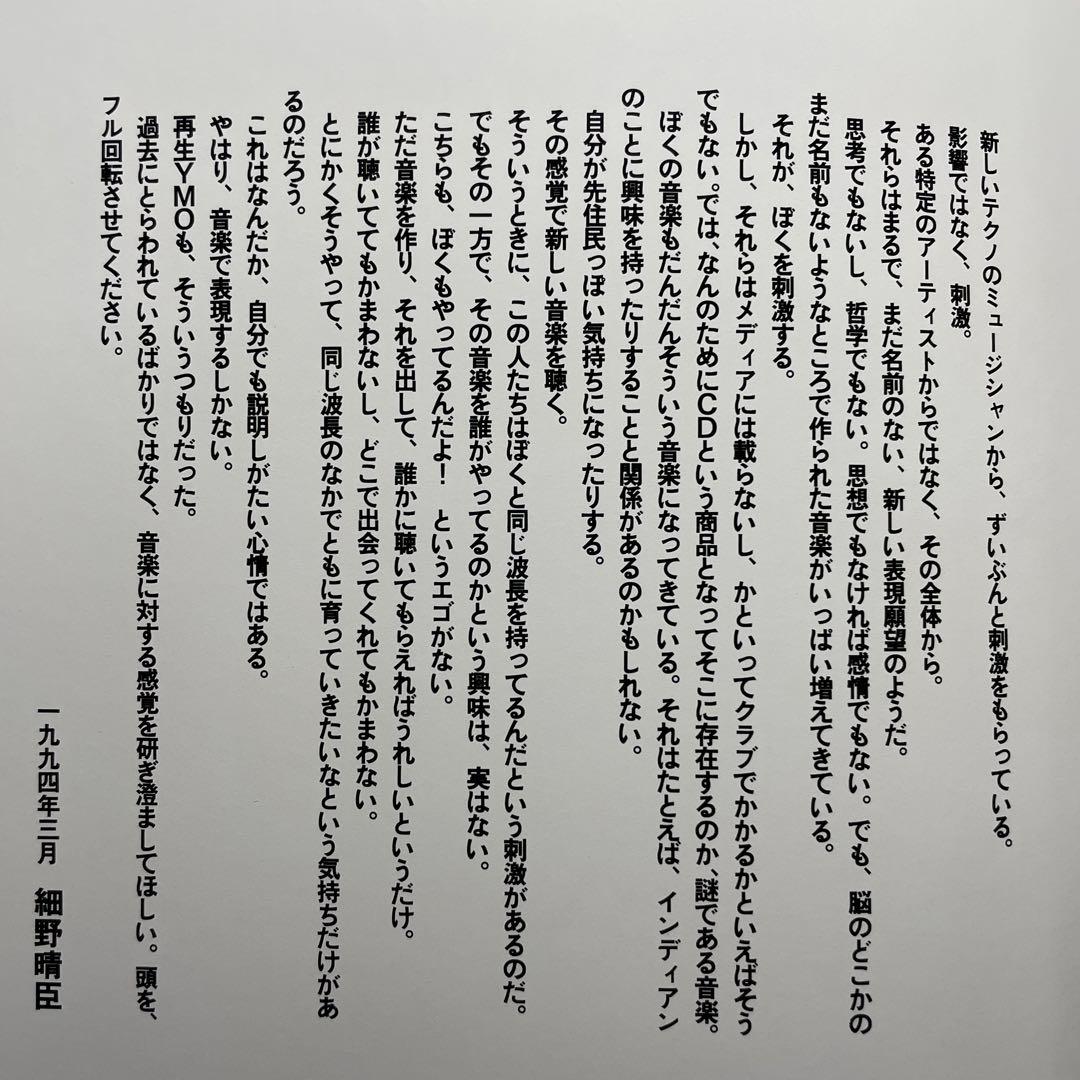 新しいテクノのミュージシャンから、ずいぶんと刺激をもらっている。
影響ではなく、刺激。
ある特定のアーティストからではなく、その全体から。
それらはまるで、まだ名前のない、新しい表現願望のようだ。
思考でもないし、哲学でもない。思想でもなければ感情でもない。でも、脳のどこかの
まだ名前もないようなところで作られた音楽がいっぱい増えてきている。
それが、ぼくを刺激する。
しかし、それらはメディアには載らないし、かといってクラブでかかるかといえばそう
でもない。では、なんのためにCDという商品となってそこに存在するのか、謎である音楽。
ぼくの音楽もだんだんそういう音楽になってきている。それはたとえば、インディアン
のことに興味を持ったりすることと関係があるのかもしれない。
自分が先住民っぽい気持ちになったりする。
その感覚で新しい音楽を聴く。
そういうときに、この人たちはぼくと同じ波長を持ってるんだという刺激があるのだ。
でもその一方で、その音楽を誰がやってるのかという興味は、実はない。
こちらも、ぼくもやってるんだよ！　というエゴがない。
ただ音楽を作り、それを出して、誰かに聴いてもらえればうれしいというだけ。
誰が聴いててもかまわないし、どこで出会ってくれてもかまわない。
とにかくそうやって、同じ波長のなかでともに育っていきたいなという気持ちだけがあ
るのだろう。
これはなんだか、自分でも説明しがたい心情ではある。
やはり、音楽で表現するしかない。
再生YMOも、そういうつもりだった。
過去にとらわれているばかりではなく、音楽に対する感覚を研ぎ澄ましてほしい。頭を、
フル回転させてください。
一九九四年三月　細野晴臣